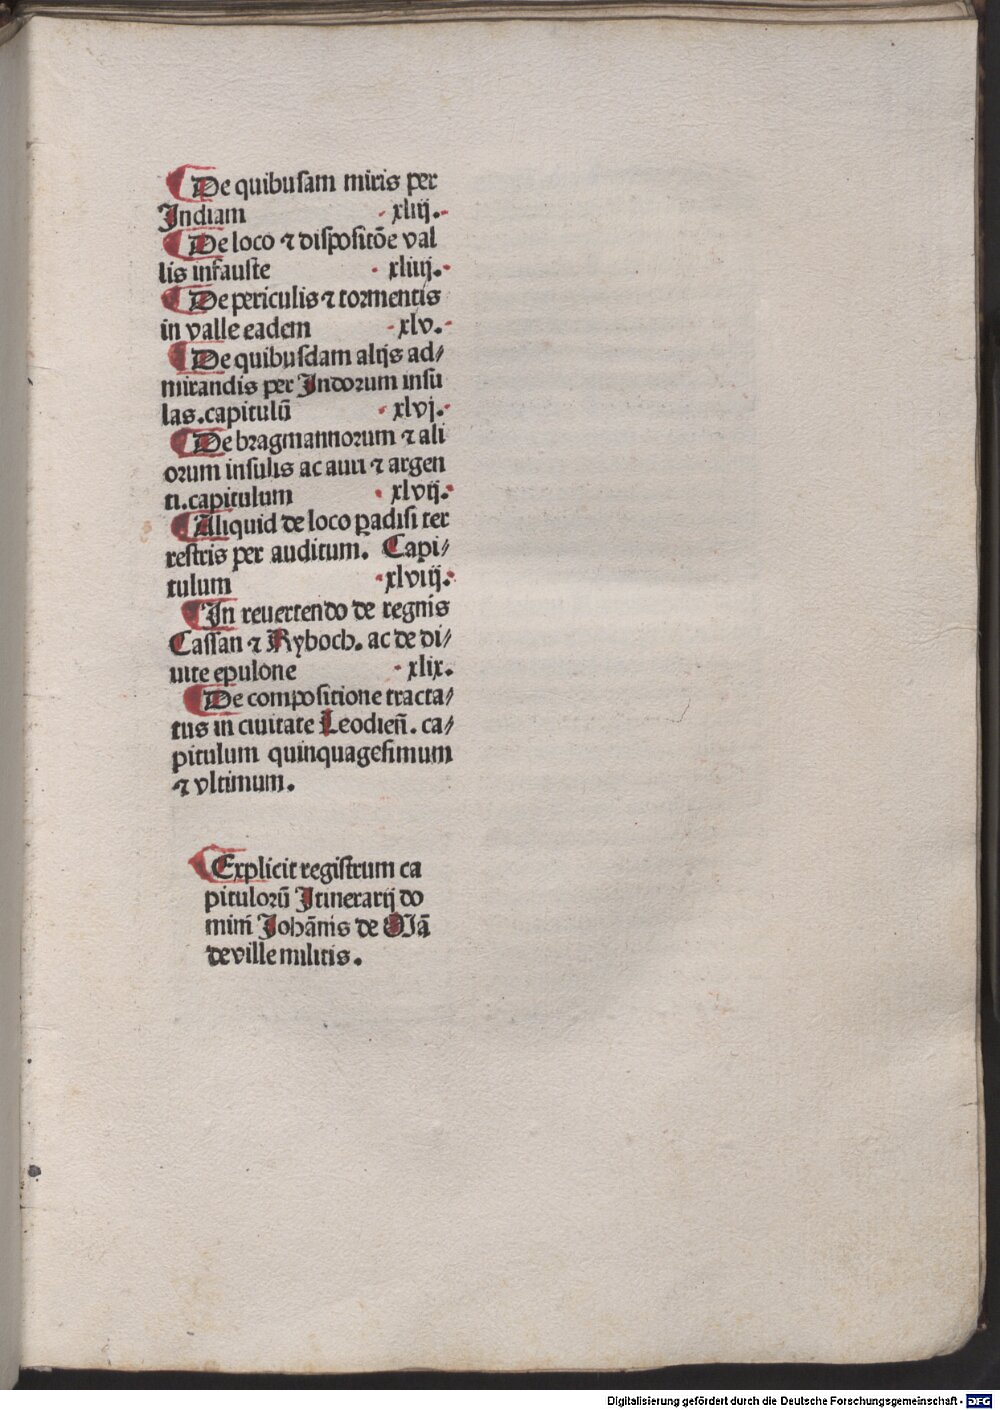 ¶ De quibusam miris per
Indiam .xliij.
¶ De loco ⁊ dispositōe val
lis infauste .xliiij.
¶ De periculis ⁊ tormentis
in valle eadem .xlv.
¶ De quibusdam alijs ad⸗
mirandis per Indorum insu
las.capitulū .xlvj.
¶ De bragmannorum ⁊ ali
orum insulis ac auri ⁊ argen
ti.capitulum .xlvij.
¶ Aliquid de loco ꝑadisi ter
restris per auditum. Capi⸗
tulum .xlviij.
¶ In reuertendo de regnis
Cassan ⁊ Ryboch. ac de di⸗
uite epulone .xlix.
¶ De compositione tracta⸗
tus in ciuitate Leodieñ. ca⸗
pitulum quinquagesimum
⁊ vltimum.
¶ Explicit registrum ca
pitulorū Itinerarij do
mini Iohānis de Mā
deville militis.
Digitalisierung gefördert durch die Deutsche Forschungsgemeinschaft - DFG